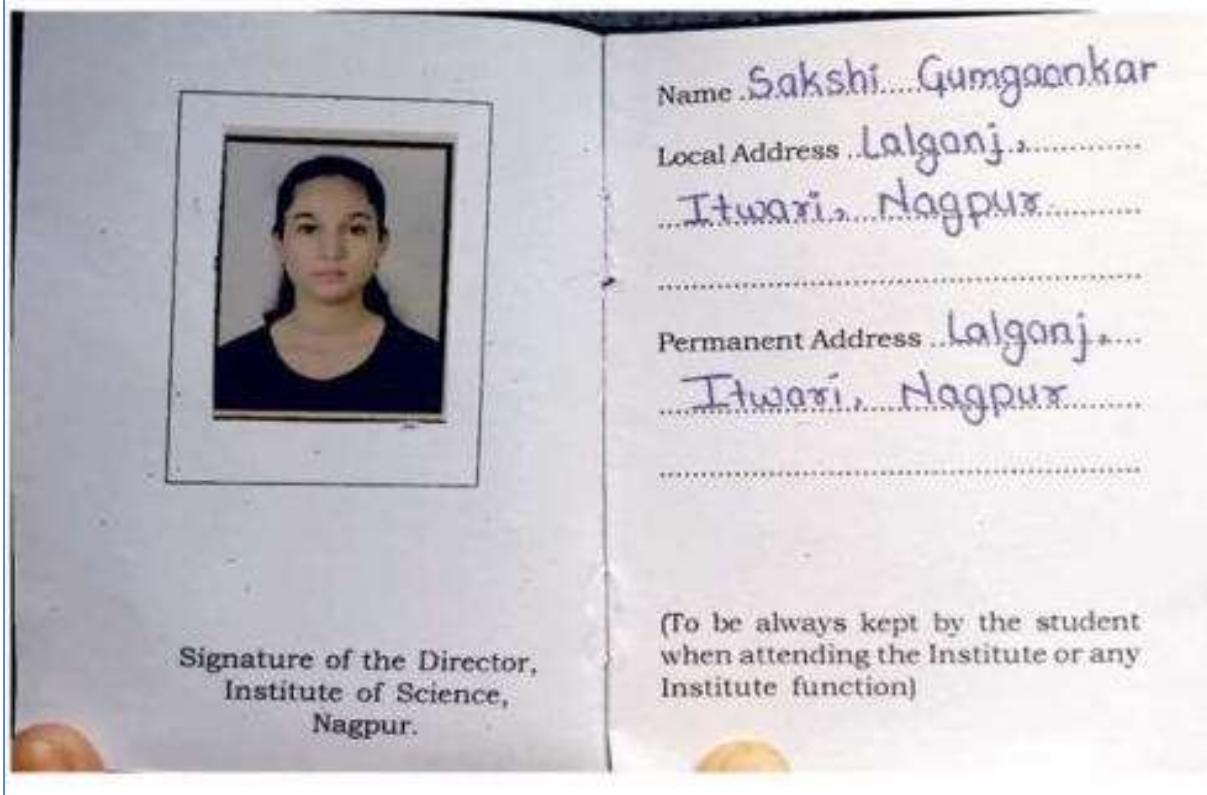 Signature of the Director,
Institute of Science,
Nagpur.
Name Sakshi Gumgaonkar
Local Address Lalganj,
Itwari, Nagpur.
Permanent Address Lalganj,
Itwari, Nagpur
(To be always kept by the student
when attending the Institute or any
Institute function)